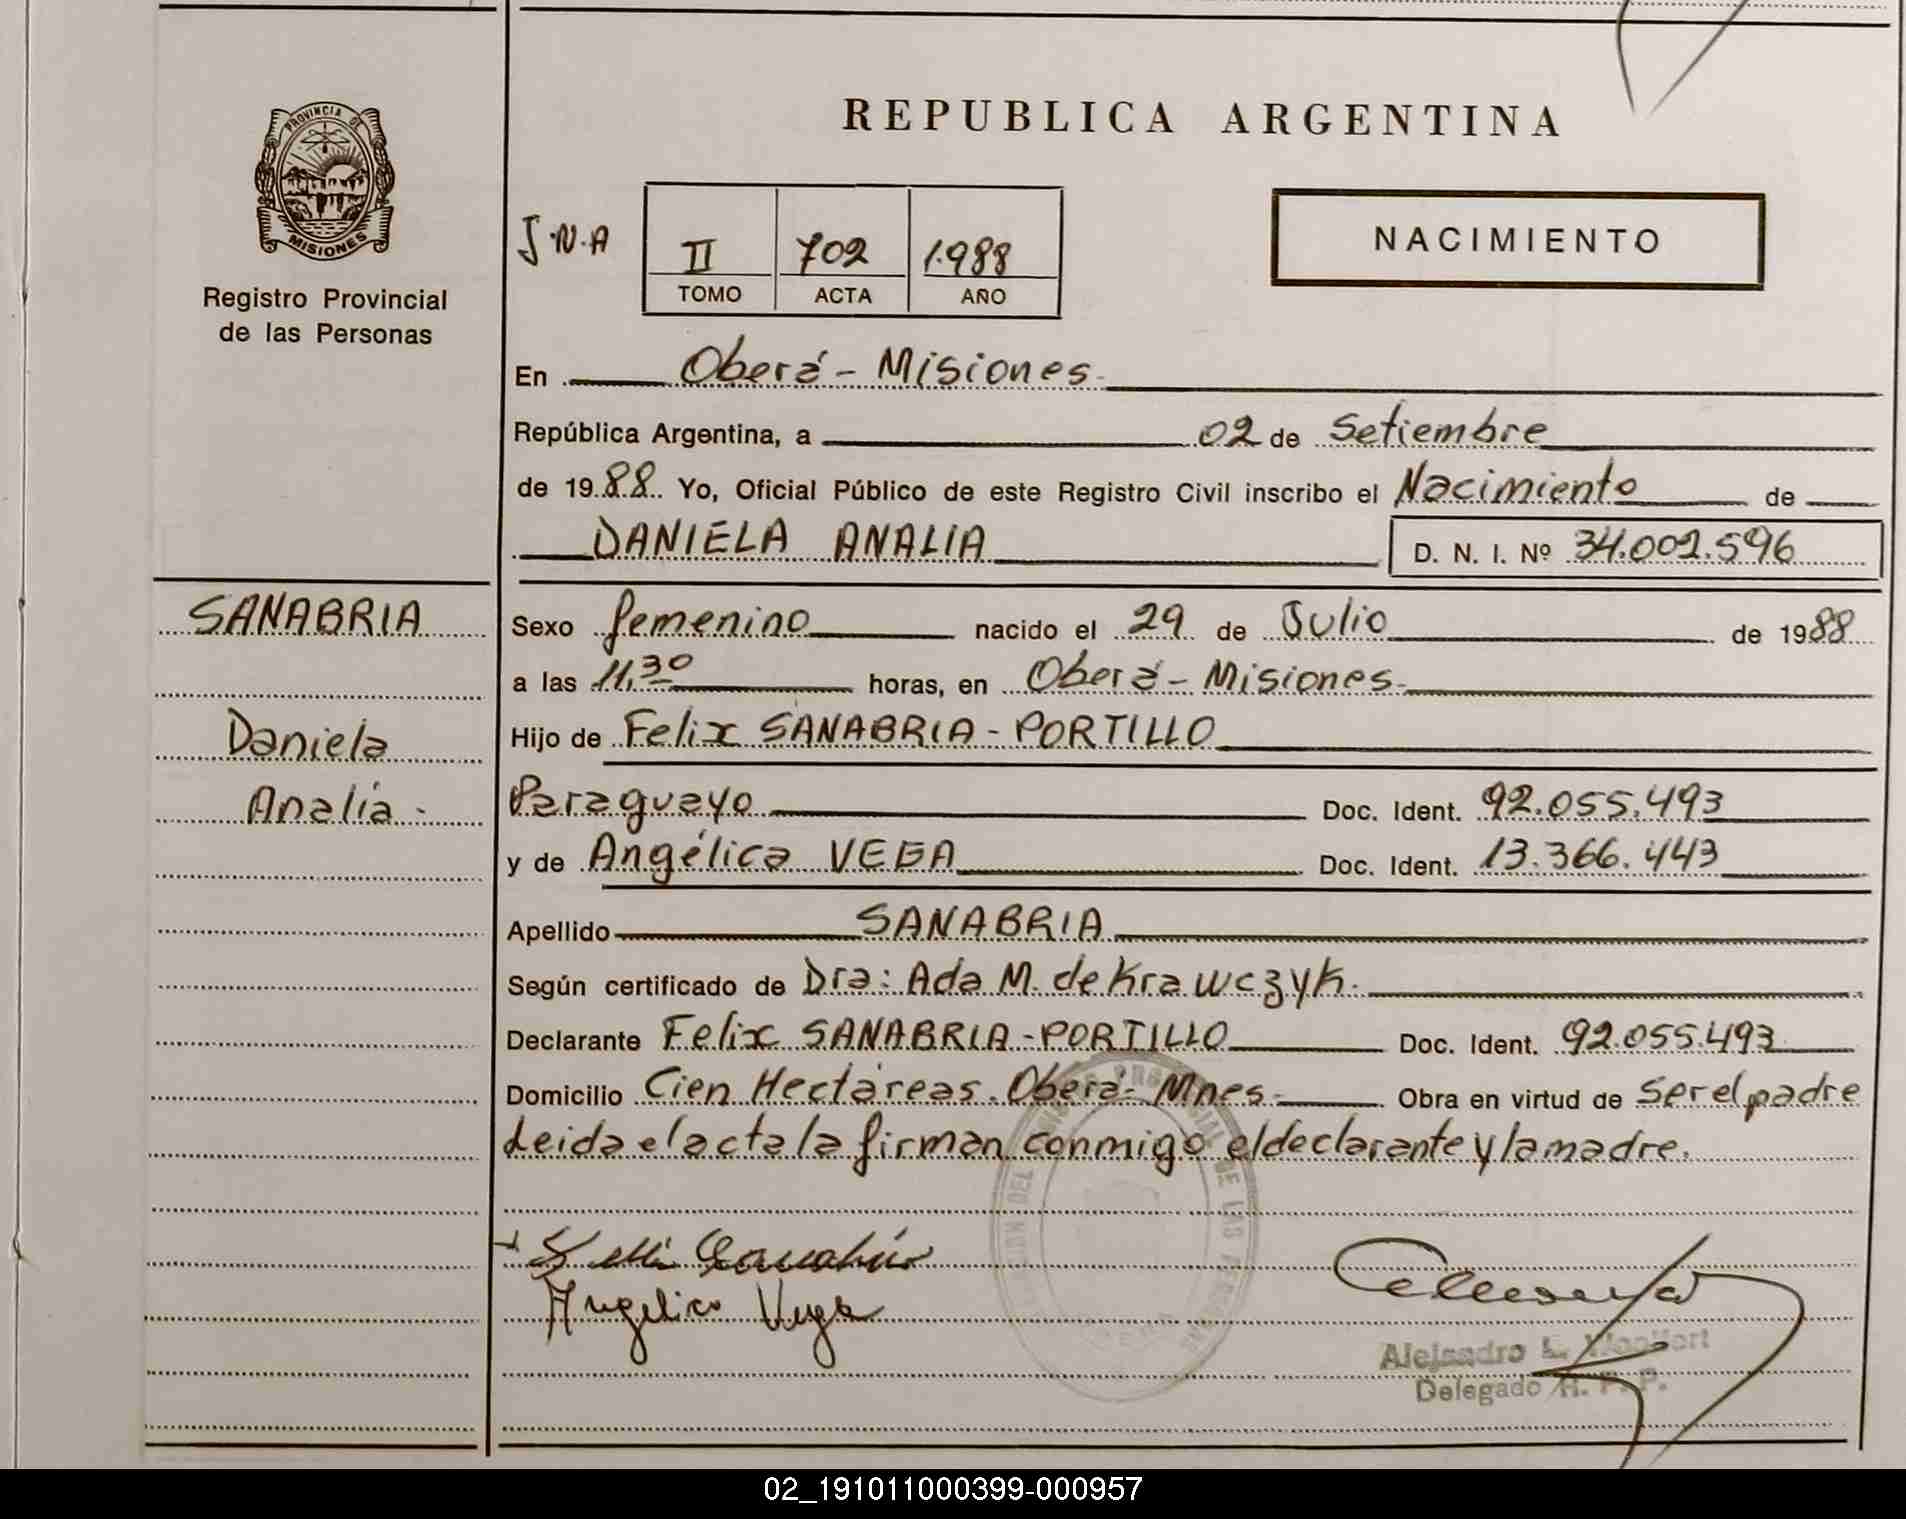 PROVINCIA DE
MISIONES
Registro Provincial
de las Personas
SANABRIA
Daniela
Analía.
REPUBLICA ARGENTINA
J.N.A
II 702 1.988
TOMO ACTA AÑO
NACIMIENTO
En Oberá - Misiones.
República Argentina, a 02 de Setiembre
de 1988. Yo, Oficial Público de este Registro Civil inscribo el Nacimiento de
DANIELA ANALIA
D. N. I. Nº 34.002.596
Sexo femenino nacido el 29 de Julio de 1988
a las 11,30 horas, en Oberá - Misiones.
Hijo de Felix SANABRIA - PORTILLO
Paraguayo Doc. Ident. 92.055.493
y de Angélica VEGA Doc. Ident. 13.366.443
Apellido SANABRIA
Según certificado de Dra: Ada M. de Krawczyk.
Declarante Felix SANABRIA - PORTILLO Doc. Ident. 92.055.493
Domicilio Cien Hectáreas. Oberá - Mnes. Obra en virtud de ser el padre
Leida el acta la firman conmigo el declarante y la madre.
Angelica Vega
Alejandro L.
Delegado R. P. P.
02_191011000399-000957